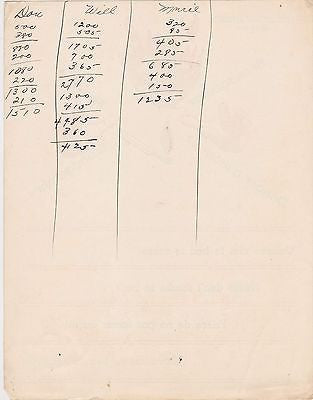 Don
600
280
880
200
1080
220
1300
210
1510
Will
1200
505
1705
700
365
2770
1300
415
4485
360
4125
320
85
405
285
685
400
150
1235